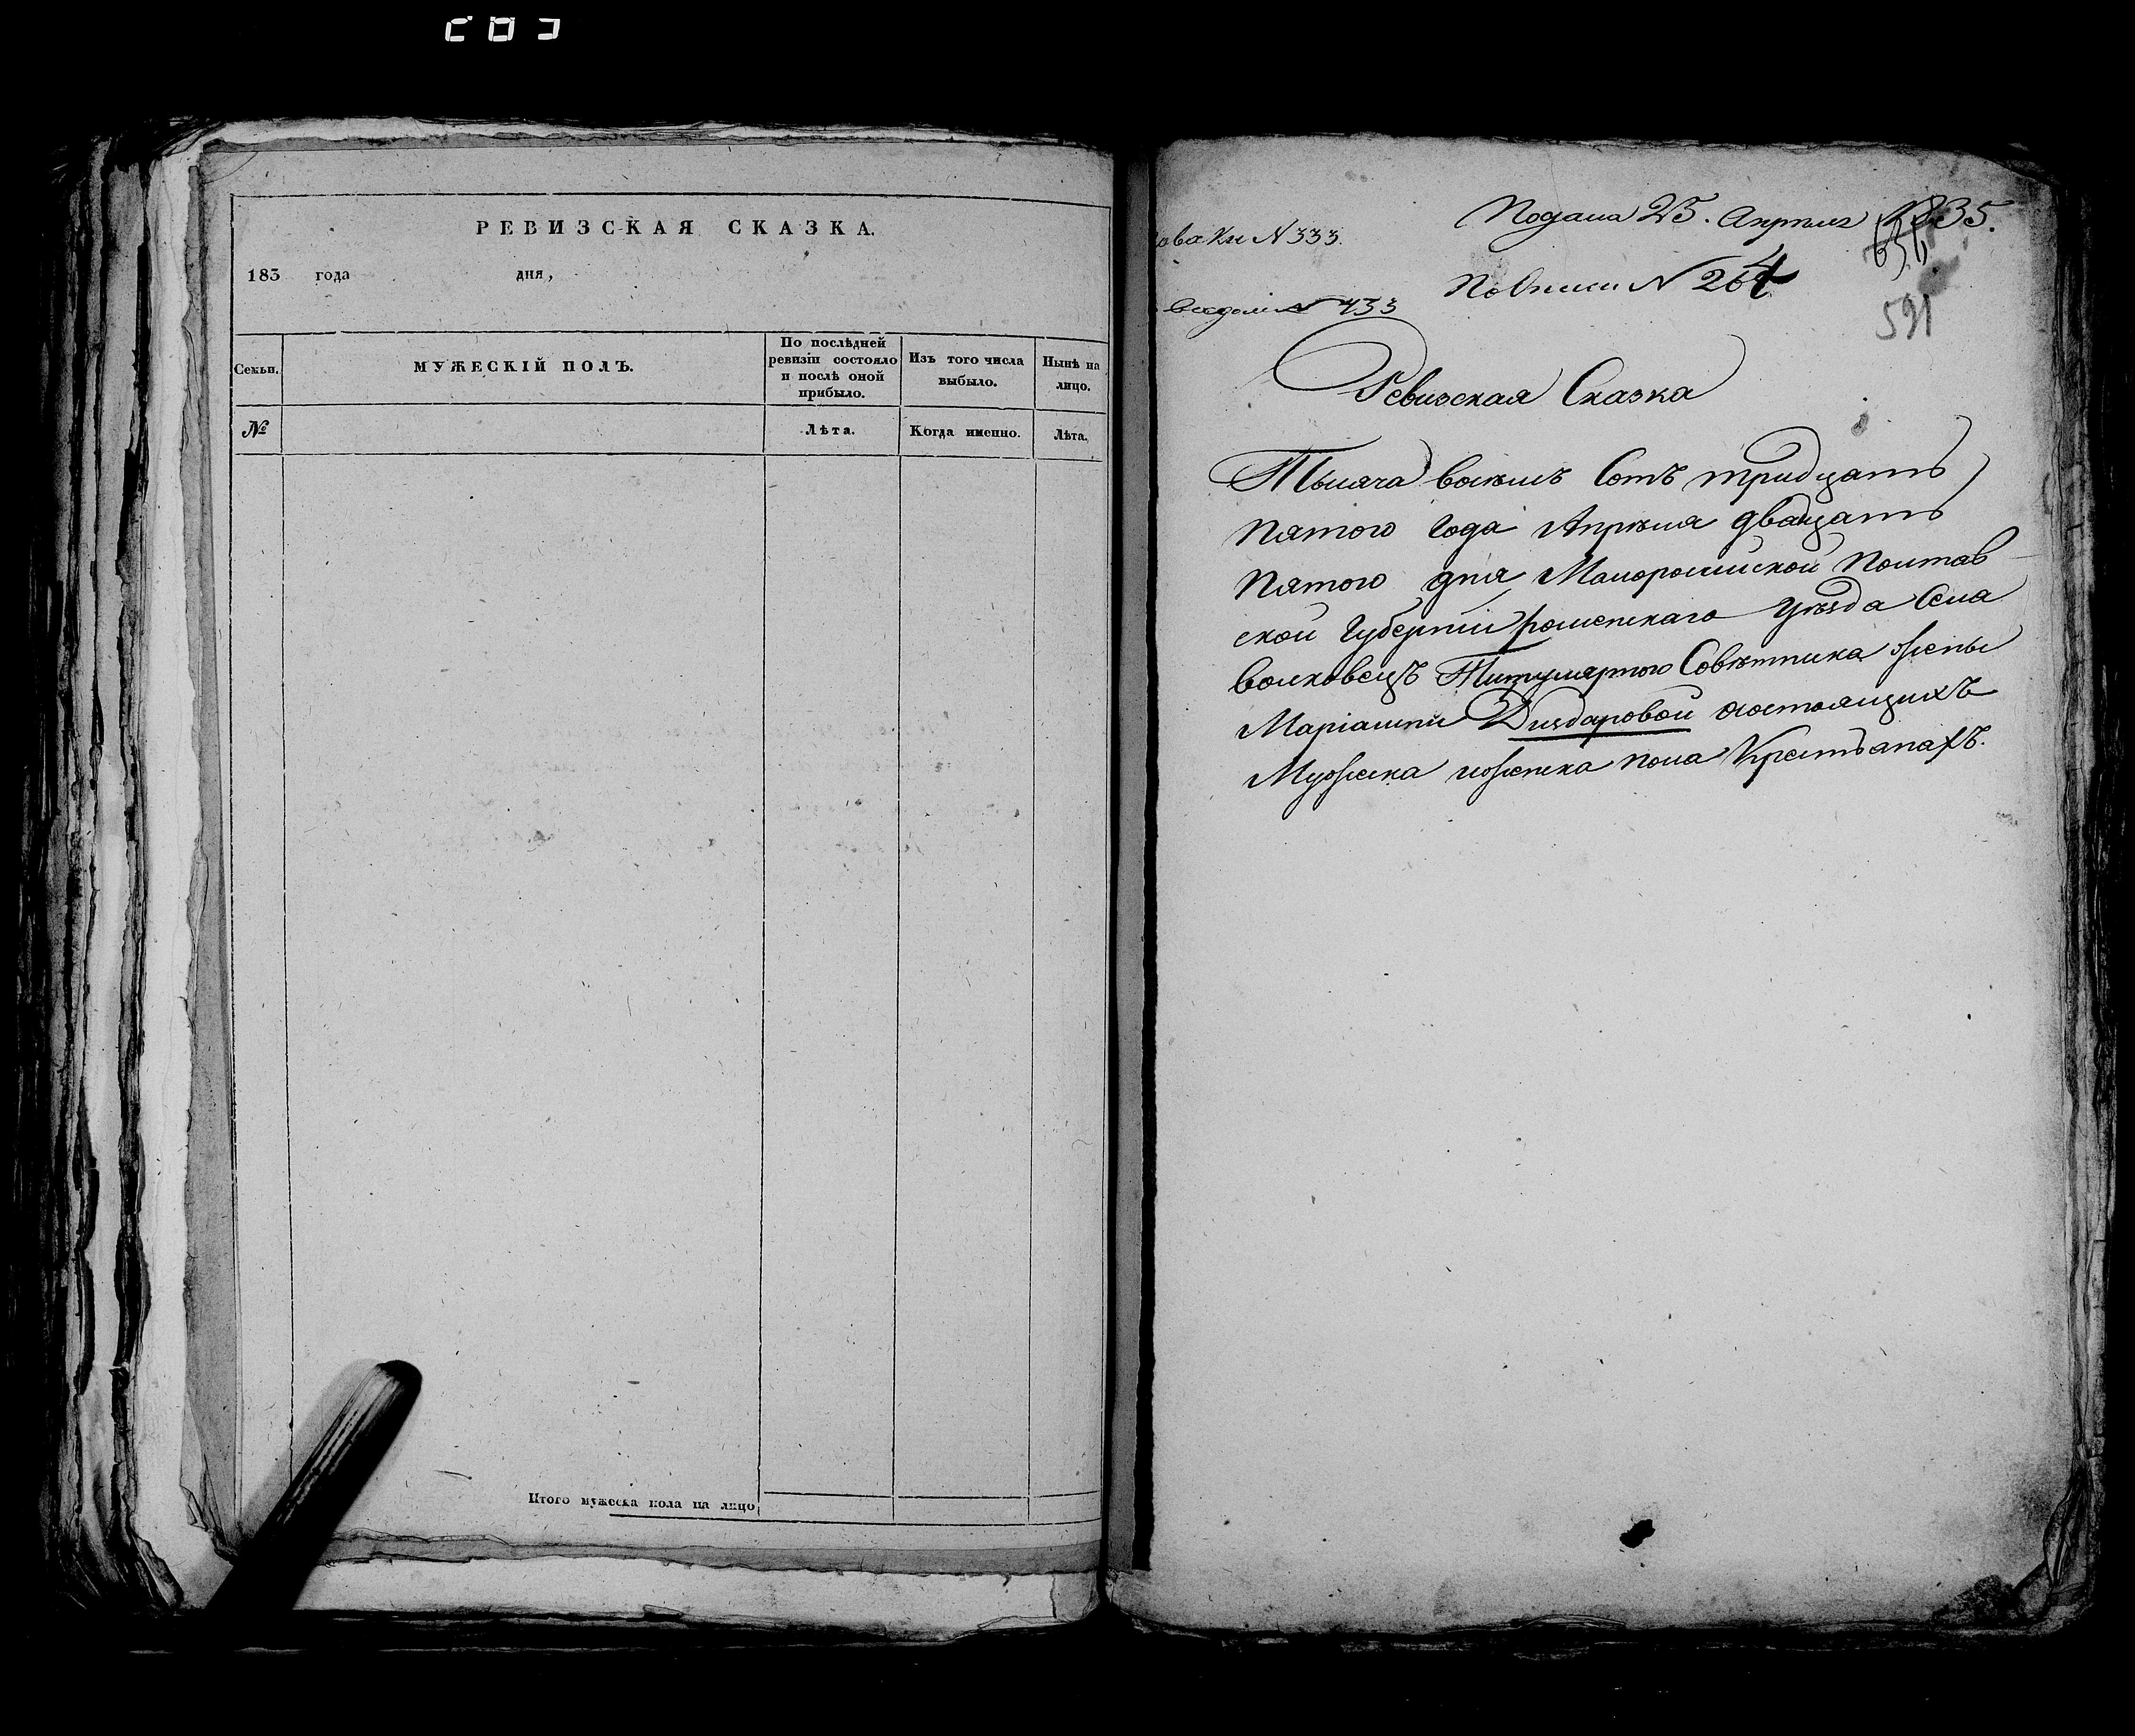 РЕВИЗСКАЯ СКАЗКА.
183 года дня,
Семьи.
МУЖЕСКІЙ ПОЛЪ.
По послѣдней ревизіи состояло и послѣ оной прибыло.
Изъ того числа выбыло.
Нынѣ на лицо.
№
Лѣта.
Когда именно.
Лѣта.
Итого мужеска пола на лицо
Подана 25. Апрѣля 1835.
N 333.
По Описи N 264
N 433
591
Ревизская Сказка
Тысяча восемъ Сотъ тридцать
Пятого года Апрѣля двадцать
Пятого дня Малоросийской Полтав
ской Губерніи роменскаго Уѣзда Села
волковецъ Титулярного Совѣтника жены
Маріанни Диздаровой состоящихъ
Мужска иженска пола Крестьянахъ.